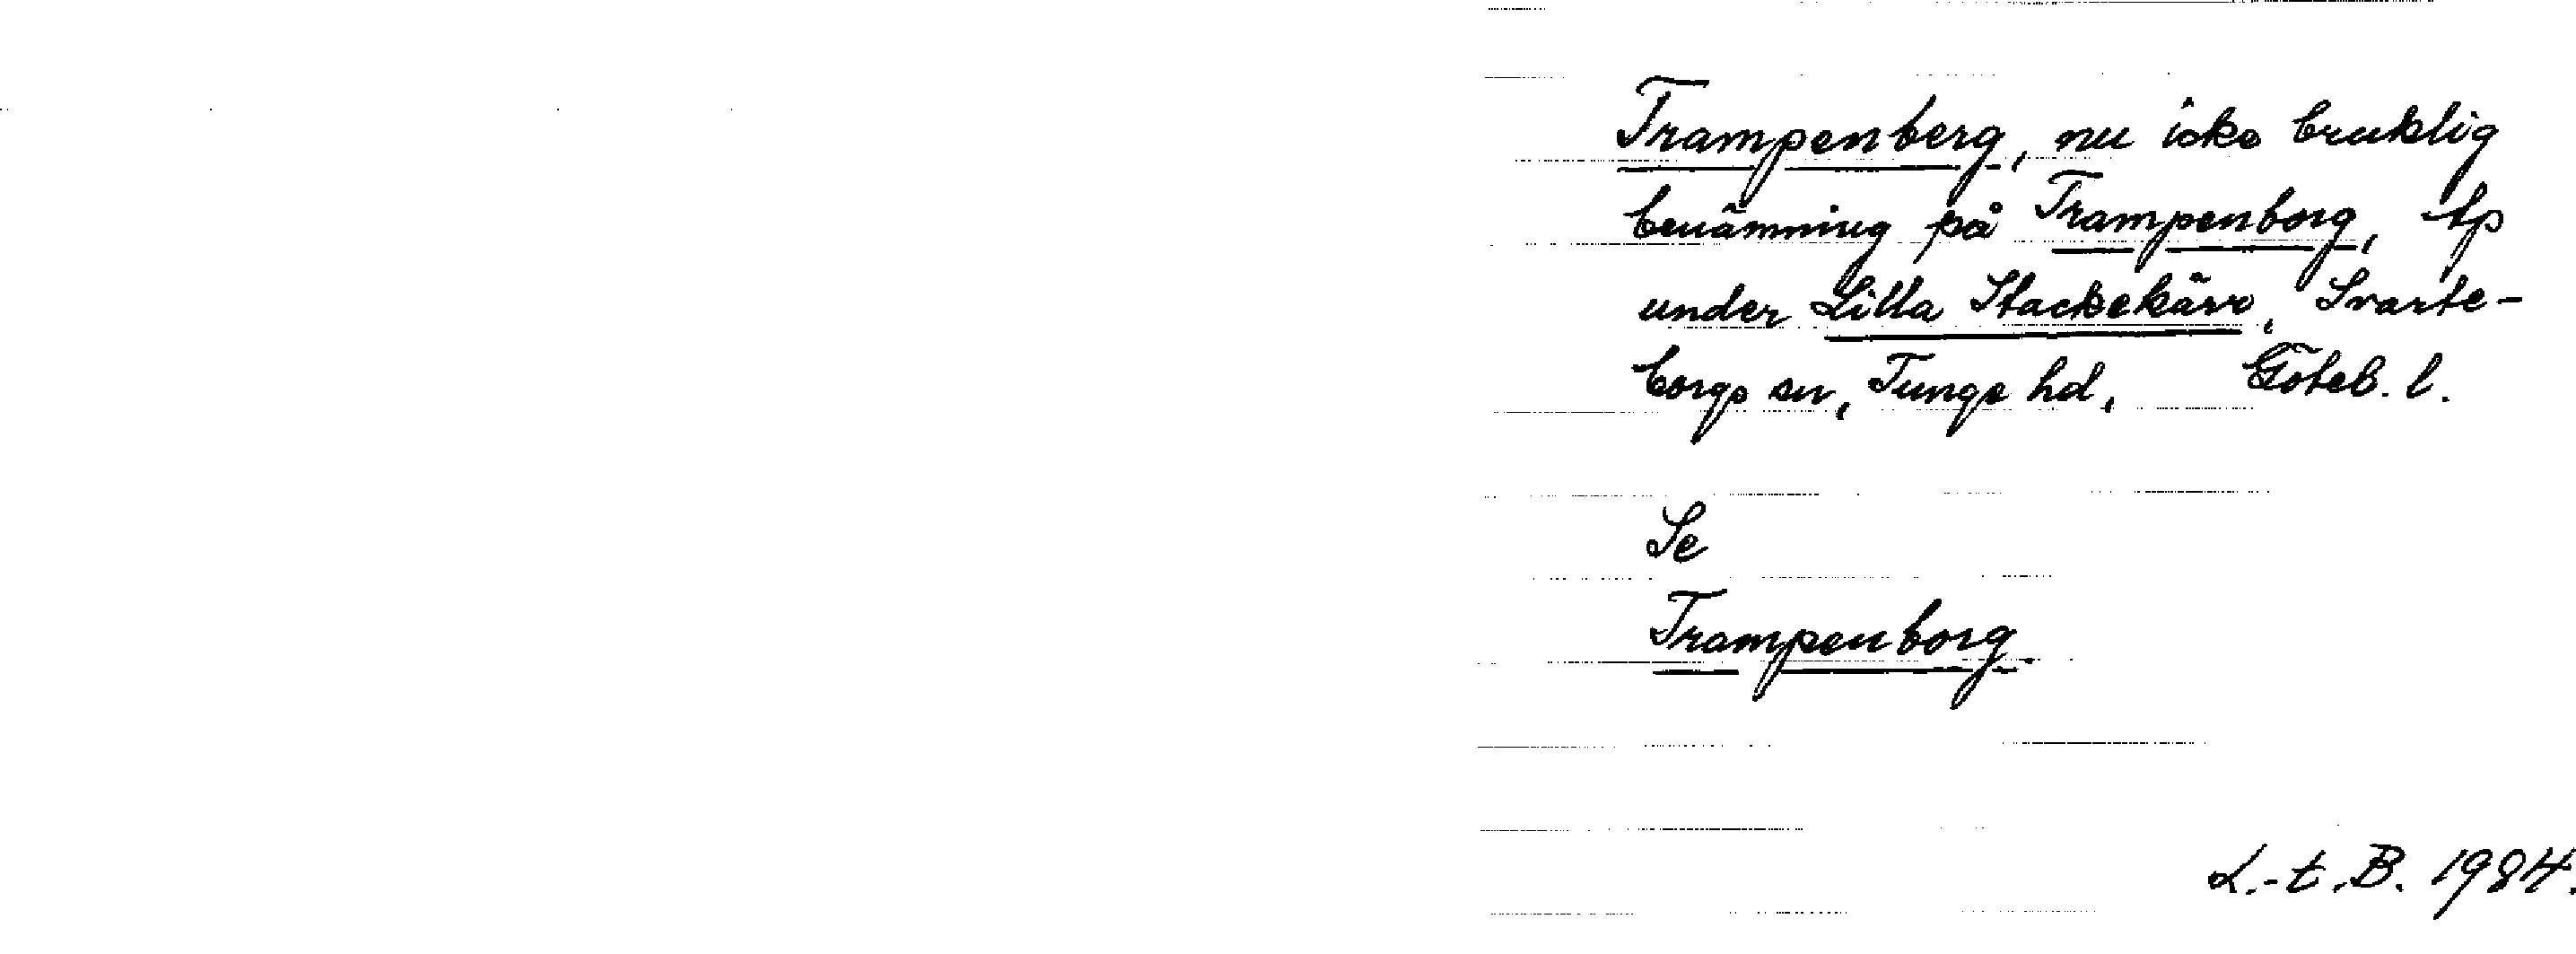 Trampenberg, nu icke bruklig
benämning på Trampenborg, tp
under Lilla Stackekärr, Svarte-
borgs sn, Tunge hd, Göteb. l.
Se
Trampenborg.
L.-t.B. 1984.